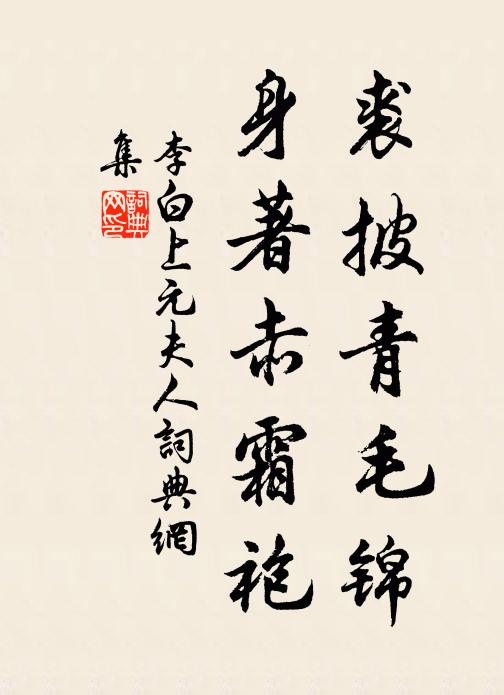 裘披青毛锦
身著赤霜袍
李白上元夫人詞典網
集
詞典
网印